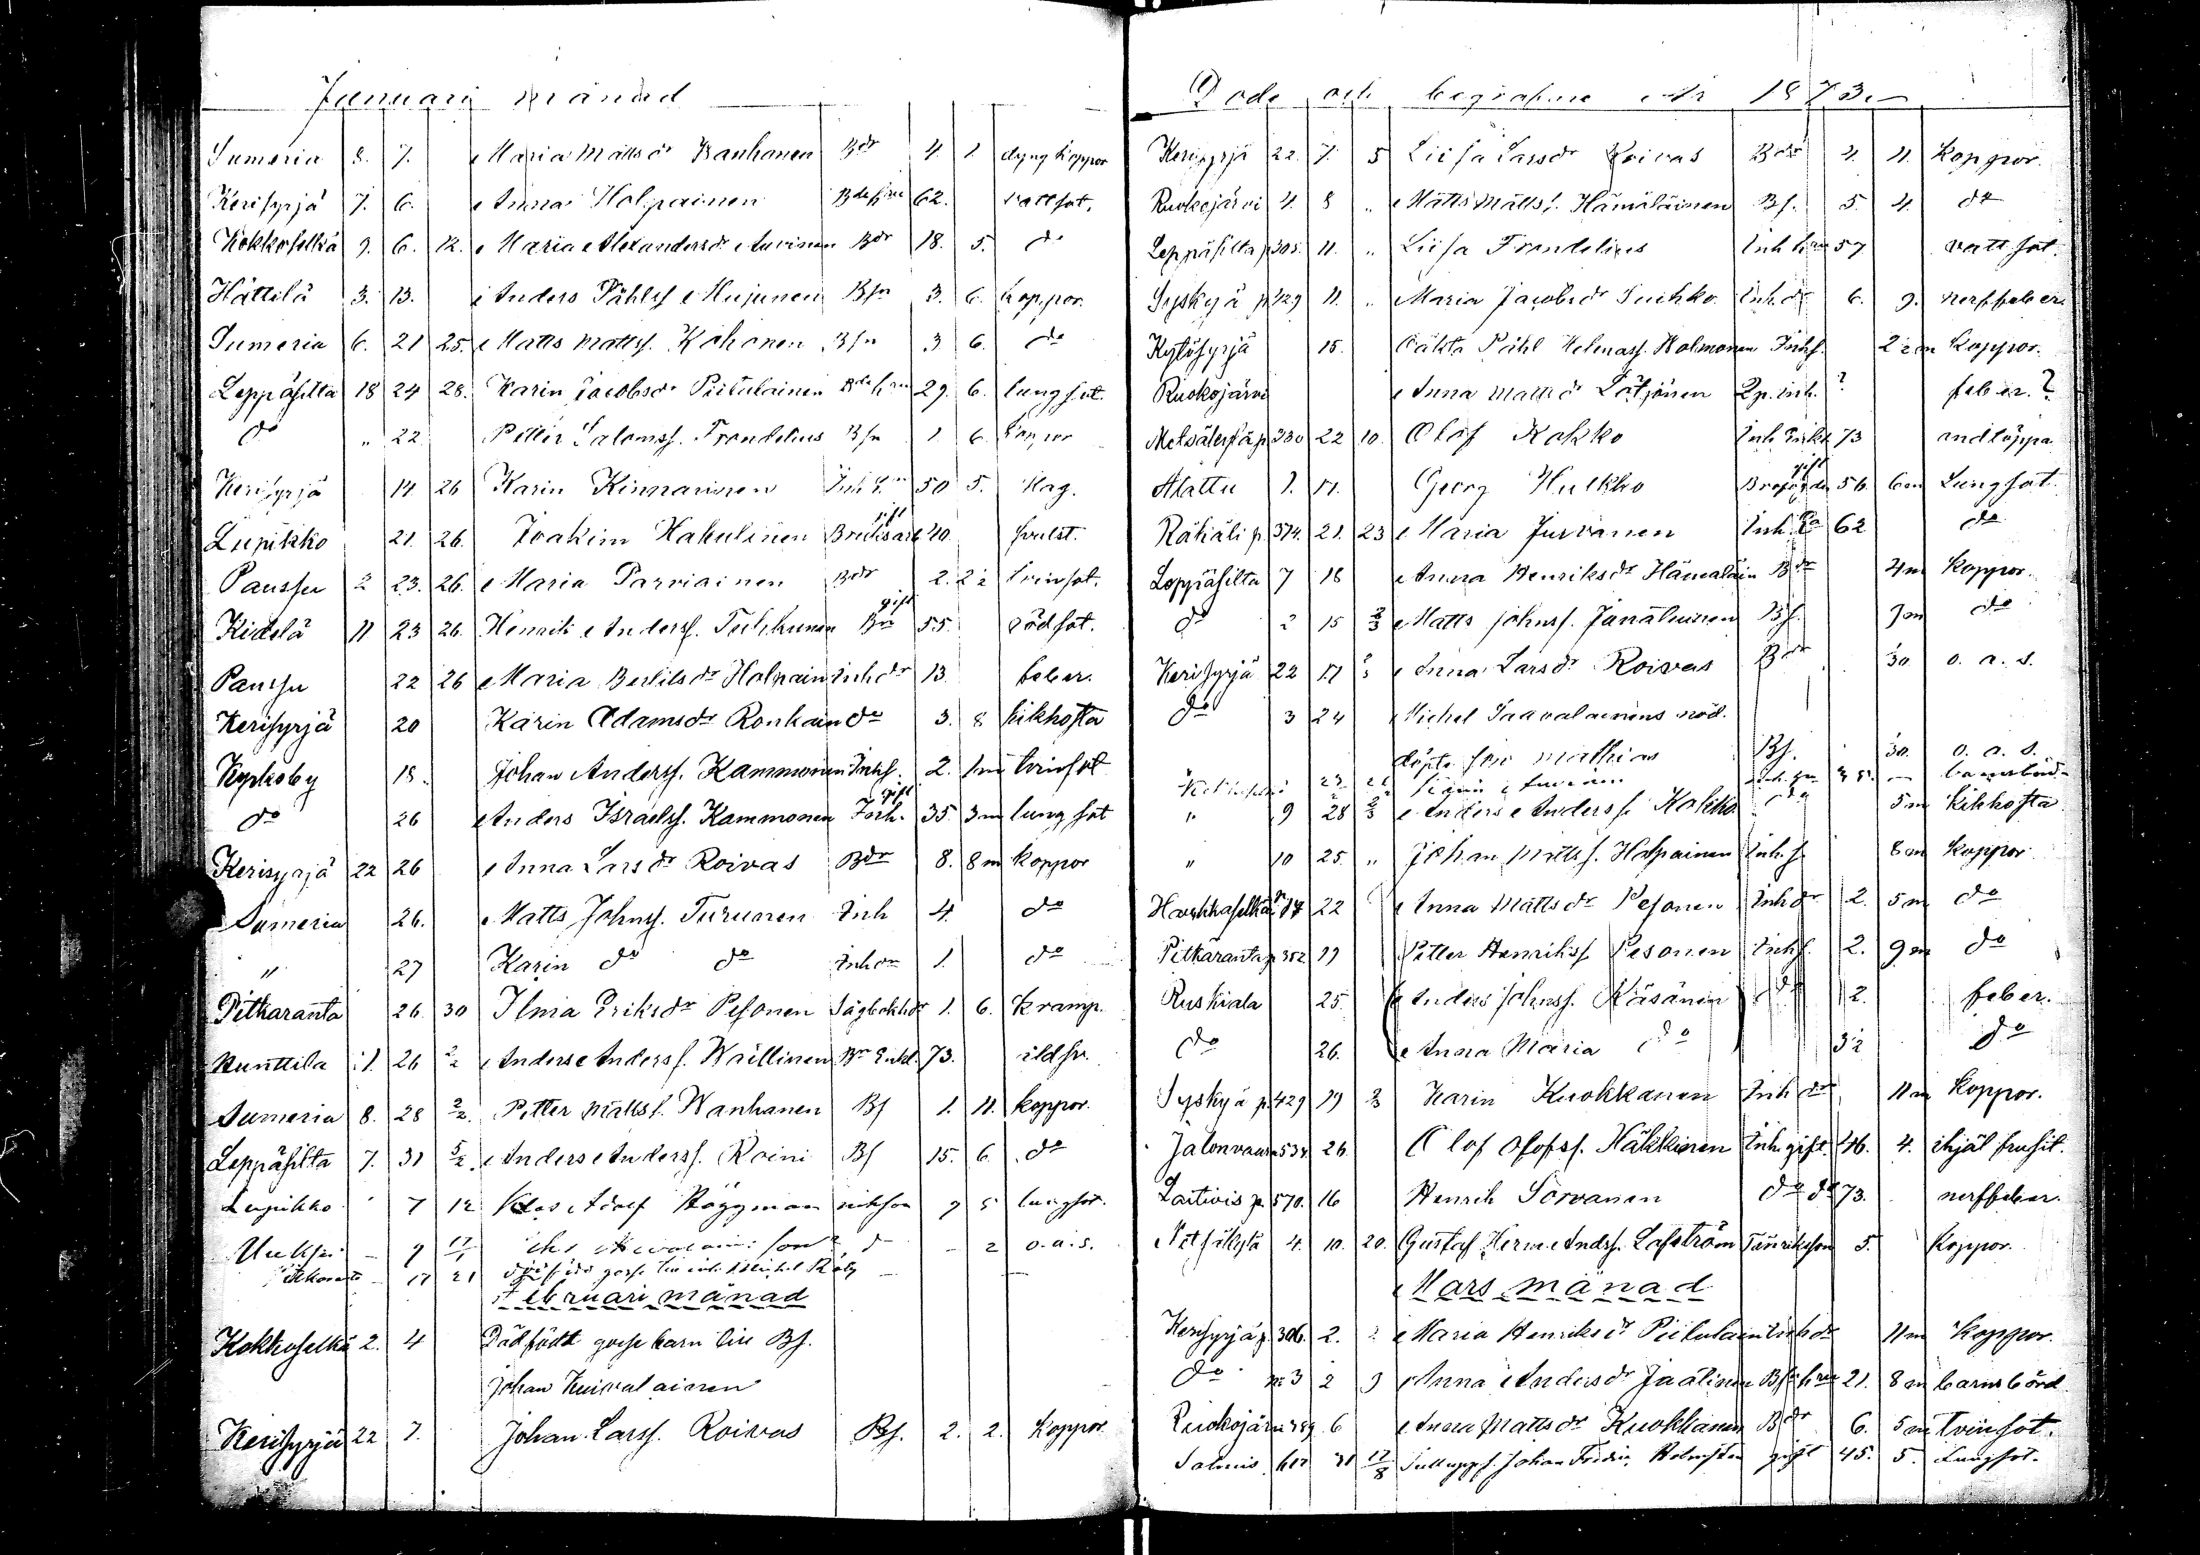 Januari månad
Sumeria 8. 7. Maria Mattsdr Wanhanen Bdr 4. 1. dyng koppor
Kerisyrjä 7. 6. Anna Holpainen Bdeshru 62. vattsot.
Kokkoselkä 9. 6. 12. Maria Alexandersdr Auvinen Bdr 18. 5. do
Hättilä 3. 13. Anders Påhlss Hujunen Bsn 3. 6. koppor.
Sumeria 6. 21 25. Matts Mattss. Kohonen Bsn 3 6. do
Leppäsilta 18 24 28. Karin Jacobsdr Piitulainen 29. 6. lungsot.
do " 22 Petter Salomss. Frondelius Bsn 1. 6. koppor
Kerisyrjä 14 26 Karin Kinnarinen Inh 50 5. slag.
Lupikko 21. 26. Joakim Hakulinen gift 40.
Paussu 2 23. 26. Maria Parviainen Bdr 2. 2 tvinsot.
Kidelä 11 23 26. Henrik Anderss. Tuhkunen Bn gift 55. rödsot.
Paussu 22 26 Maria Bertilsdr Holpain Inhdr 13. feber.
Kerisyrjä 20 Karin Adamsdr Ronkain do 3. 8 kikhosta
Kyrkoby 18. Johan Anderss. Kammonen Inhs. 2. 1m tvinsot
do 26 Anders Israelss. Kammonen Inh. gift 35. 3m lungsot
Kerisyrjä 22 26 Anna Larsdr Roivas Bdr 8. 8m koppor
Sumeria 26. Matts Johnss. Turunen Inh 4. do
" 27 Karin do do Inhdr 1. do
Pitkäranta 26. 30 Ilma Eriksdr Pesonen Sågbokhdr 1. 6. kramp.
Nunttila 1. 26 2/2 Anders Anderss. Waillinen Bn Enkl. 73.
Sumeria 8. 28 2/2. Petter Mattss. Wanhanen Bs 1. 11. koppor.
Leppäsilta 7. 31 5/2 Anders Anderss. Roini Bs 15. 6. do
Lupikko 7 12 Klas Adolf Häggman 9 5 lungsot.
Uuksu – 9 17/1 son – 2 o.a.s.
– 17 21 gosse Michel –
Februari månad
Kokkoselkä 2. 4 Dödfödt gosse barn till Bs.
Johan Kuivalainen
Kerisyrjä 22 7. Johan Larss. Roivas Bs. 2. 2. koppor
Döde och begrafne År 1873.
Kerisyrjä 22. 7. 5 Liisa Larsdr Roivas Bdr 4. 11. koppor.
Ruokojärvi 4. 8 " Matts Mattss. Hämäläinen Bs. 5. 4. do
Leppäsilta p 305. 11. " Liisa Frondelius Inh hru 57 vattsot.
Syskyä p 429 11. " Maria Jacobsdr Suihko Inh.dr 6. 9. nerffeber
Kytösyrjä 15. Oäkta Påhl Helenass. Holmonen Inhs. 2 m koppor.
Ruokojärvi Anna Mattsdr Lötjönen Inh. ? feber. ?
Metsälerpä p. 330 22 10. Olof Kokko Inh Enkl 73 andtäppa
Alattu 1. 17. Georg Hulkko gift 56. 6m Lungsot
Räkiäli p. 374. 21. 23 Maria Jurvanen Inh. 62 do
Leppäsilta 7 18 Anna Henriksdr Hämäläin Bdr 4m koppor.
do 2 15 2/3 Matts Johnss. Janähunen Bs. 7m do
Kerisyrjä 22 17 Anna Larsdr Roivas Bdr 30 o. a. s.
do 3 24 Michel Saavalainens nöd.
döpte son Mathias Bs. 30. o. a. s.
" 9 28 2/3 Anders Anderss. Kokko do 5m kikhosta
" 10 25. " Johan Mattss. Holpainen Inh.s. 8m koppor
Haukkaselkä 14 22 Anna Mattsdr Pesonen Inhdr 2. 5m do
Pitkäranta p. 352 19 Petter Henrikss Pesonen Inhs. 2. 9m do
Ruskiala 25. Anders Johnss. Käsänen do 2. feber.
do 26. Anna Maria do 3½ do
Syskyä p. 429 19 3 Karin Kuokkanen Inhdr 11m koppor.
Jalonvaara 534. 26. Olof Olofss. Häkkinen Inh. gift. 46. 4. ihjäl frusit.
Lartivis p. 570. 16 Henrik Sorvanen do do 73. nerffeber.
4. 10. 20. Gustaf Herm. Andss. Lofström 5. koppor.
Mars månad
Kerisyrjä p. 306. 2. Maria Henriksdr Piitulain Inhdr 11m koppor.
do no 3 2 9 Anna Andersdr Jaatinen Bshru 21. 8m barnsbörd
Ruokojärvi 389 6 Anna Mattsdr Kuokkanen Bdr 6. 5m tvinsot.
Salmis 31 17/8 Johan Fredric Holmsten gift 45. 5. Lungsot.